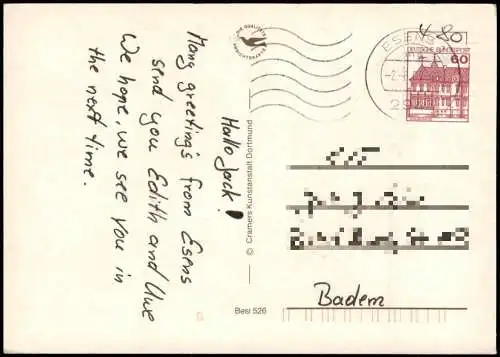 Hallo Jack!
Many greeting's from Esens
send you Edith and Uwe
We hope, we see you in
the next time.
© Cramers Kunstanstalt Dortmund
Besl 526
ESENS
DEUTSCHE BUNDESPOST
60
Badem